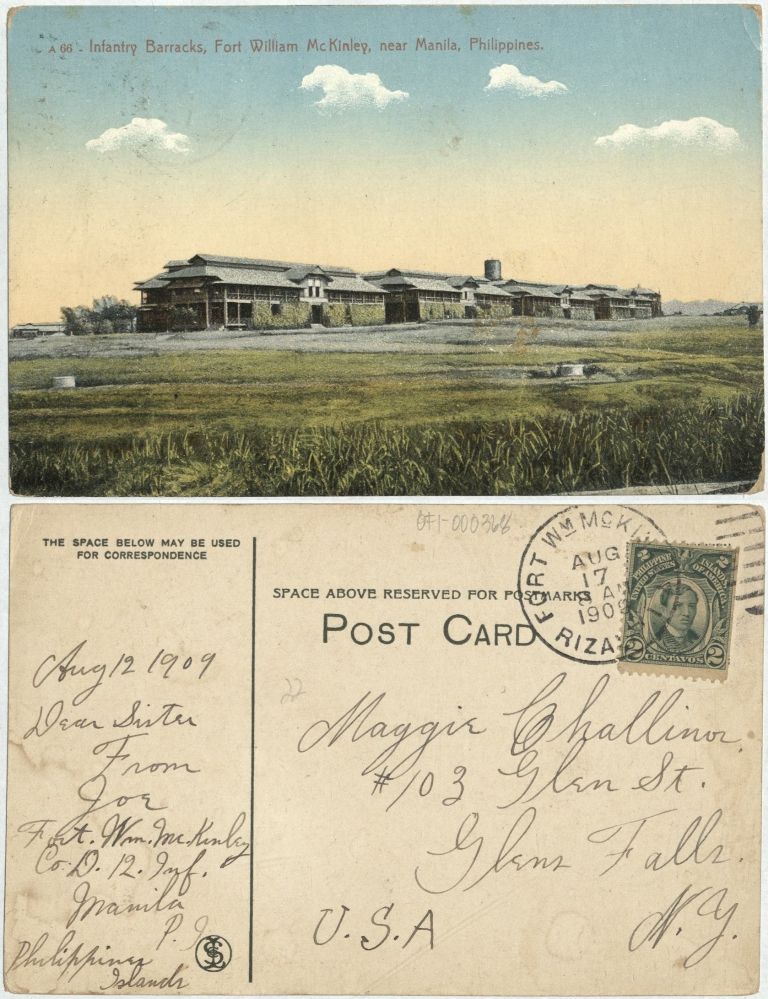 A 66 - Infantry Barracks, Fort William McKinley, near Manila, Philippines.
GFI-000368
THE SPACE BELOW MAY BE USED
FOR CORRESPONDENCE
SPACE ABOVE RESERVED FOR POSTMARKS
POST CARD
FORT WM MCKI
AUG
17
8 AM
1909
RIZA
PHILIPPINE ISLANDS
UNITED STATES OF AMERICA
2 CENTAVOS 2
Aug 12 1909
Dear Sister
From
Joe
Fort. Wm. McKinley
Co. D. 12. Inf.
Manila
P. I.
Philippines
Islands
22
Maggie Challinor
#103 Glen St.
Glens Falls.
N. Y.
U. S. A